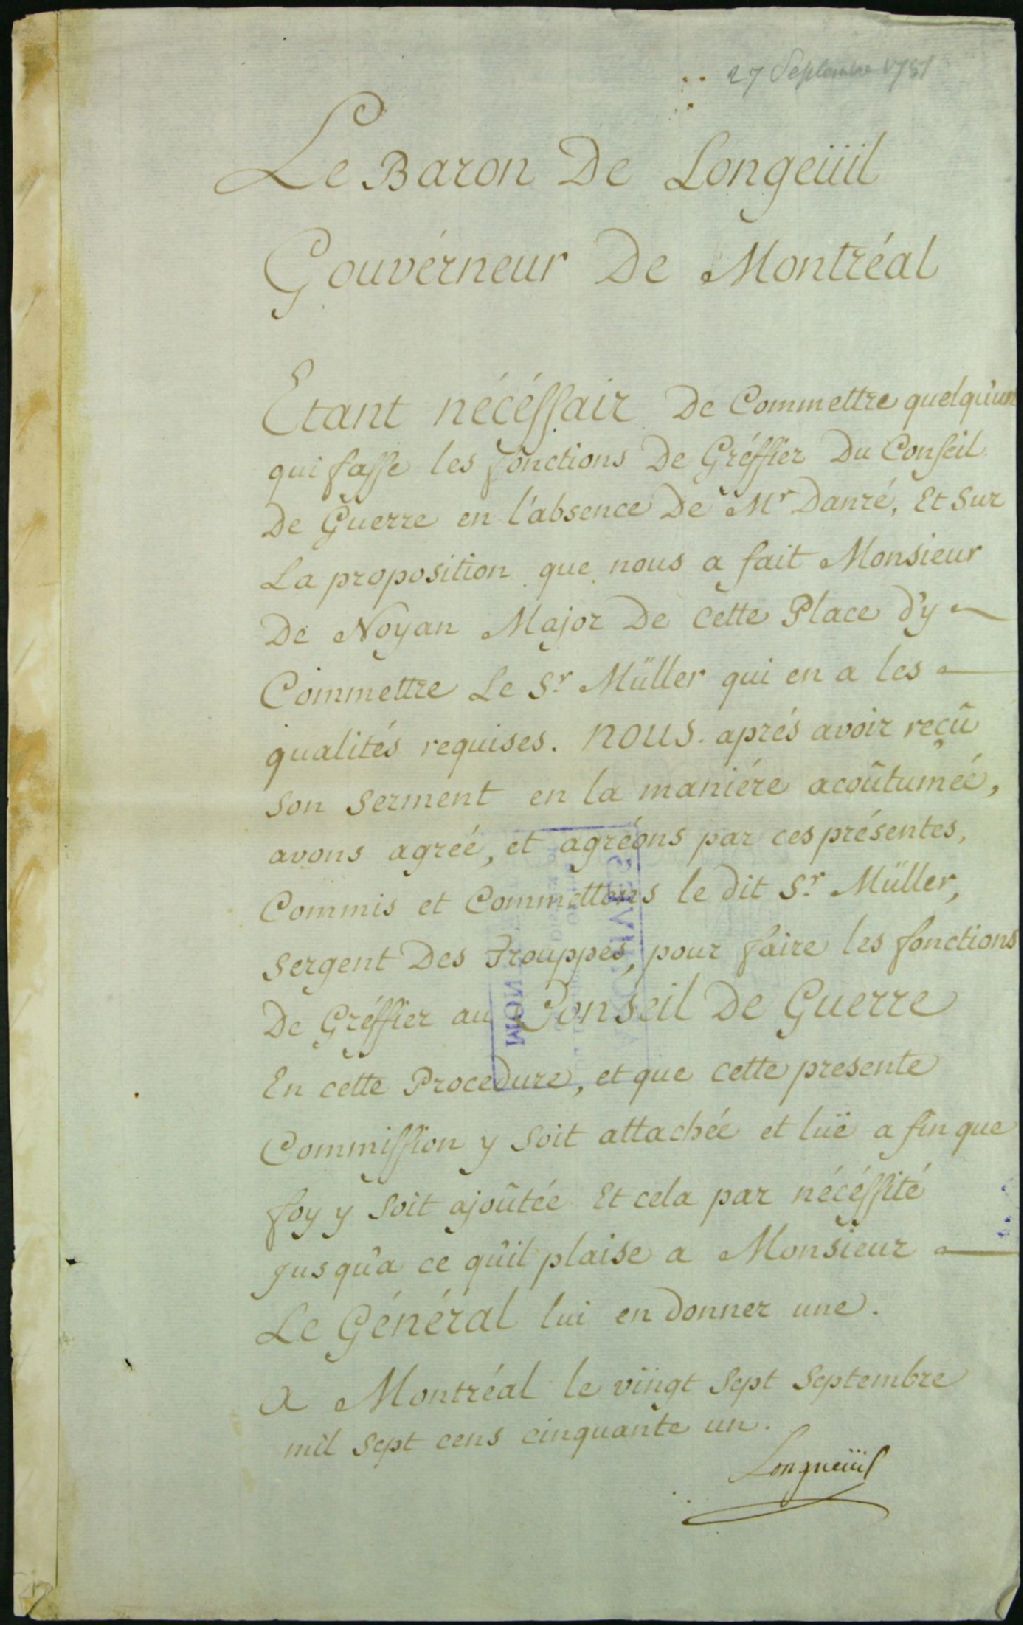 27 Septembre 1751
Le Baron De Longeüil
Gouvérneur De Montréal
Etant nécéssair De Commettre quelqu'un
qui fasse les fonctions De Gréffier Du Conseil
De Guerre en l'absence De Mr Danré, Et Sur
La proposition que nous a fait Monsieur
De Noyan Major De Cette Place d'y
Commettre Le Sr Müller qui en a les
qualités requises. nous aprés avoir reçû
son serment en la maniére acoûtumée,
avons agreé, et agréons par ces présentes,
Commis et Commettons le dit Sr Müller,
Sergent Des Trouppes, pour faire les fonctions
De Gréffier au Conseil De Guerre
En cette Procedure, et que cette presente
Commission y soit attachée et lüe a fin que
foy y soit ajoûtée Et cela par nécéssité
jusqu'a ce qu'il plaise a Monsieur
Le Général lui en donner une.
A Montréal le vingt Sept Septembre
mil Sept cens cinquante un.
Longueüil